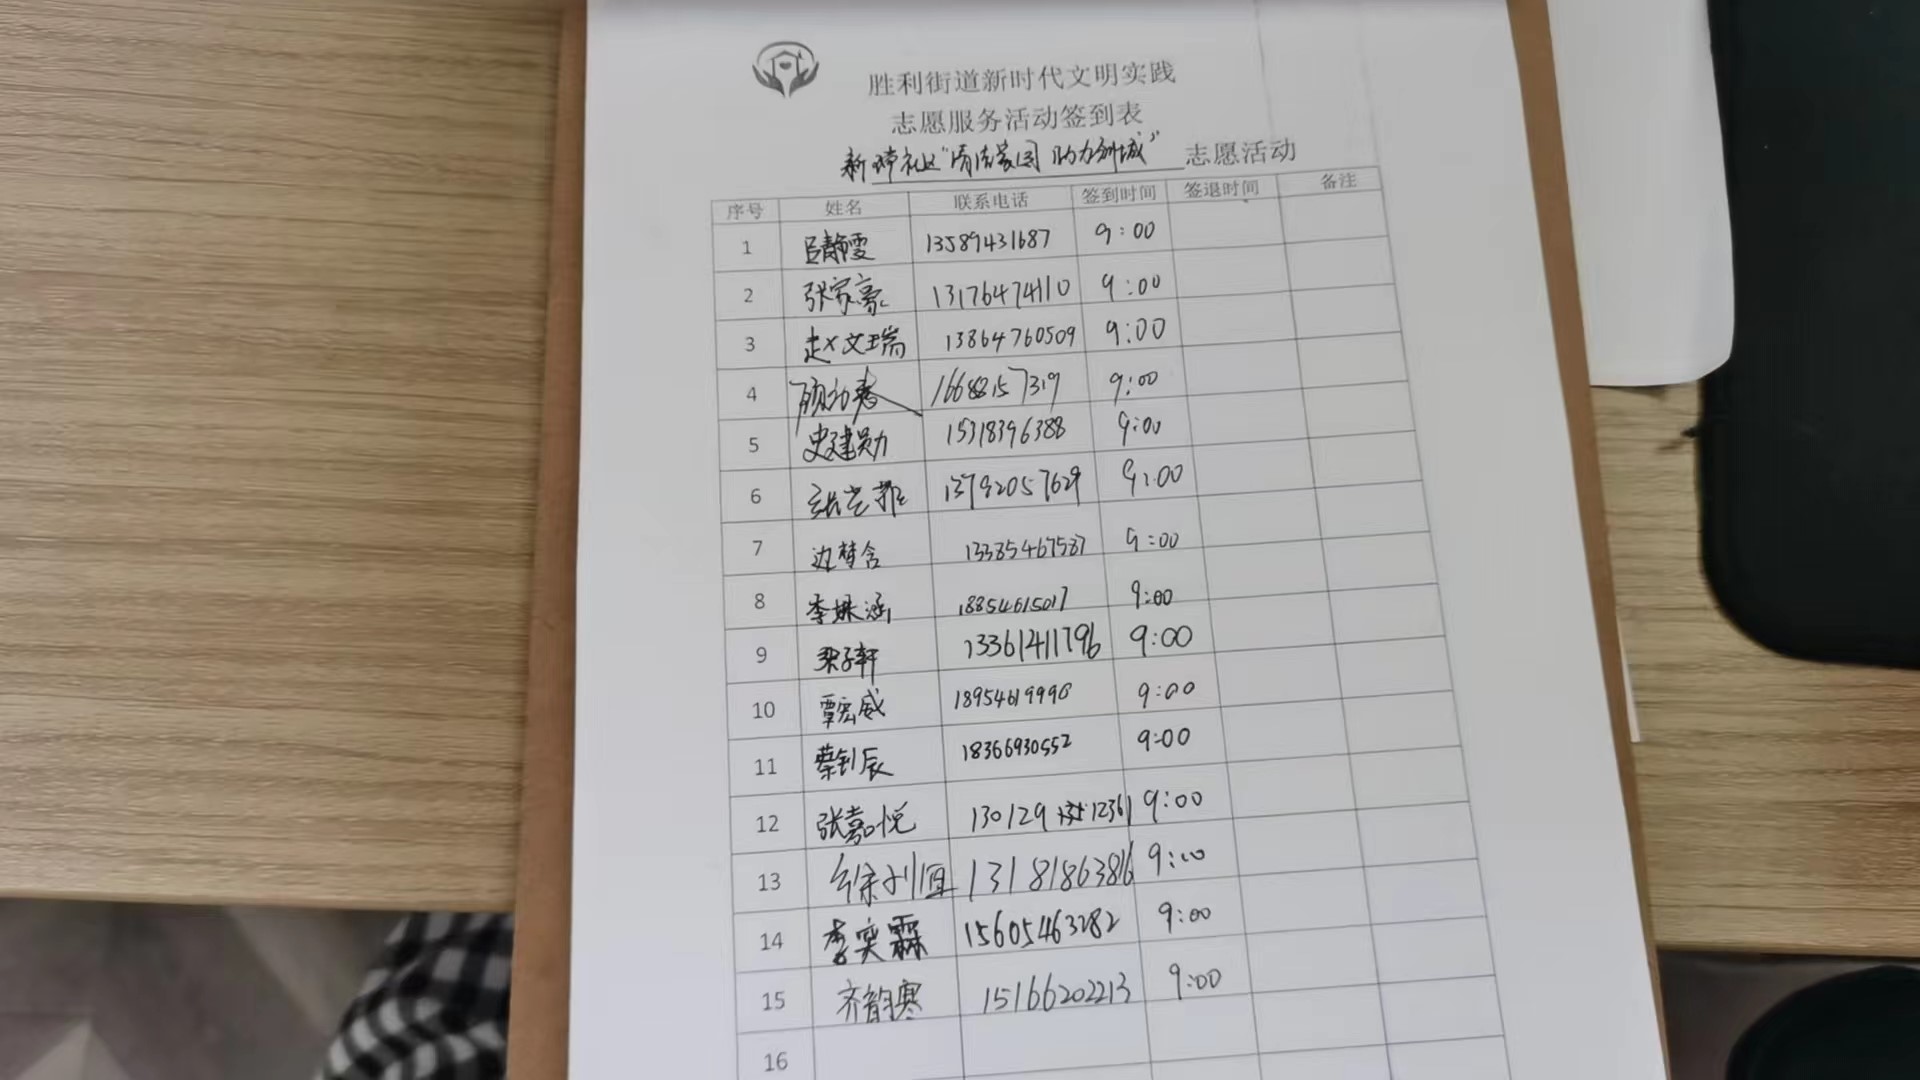 胜利街道新时代文明实践
志愿服务活动签到表
新社区“清洁家园 助力创城” 志愿活动
序号 姓名 联系电话 签到时间 签退时间 备注
1 吕静雯 13589431687 9:00
2 张家豪 13176474110 9:00
3 赵文瑞 13864760509 9:00
4 9:00
5 史建勋 15318396388 9:00
6 13792057629 9:00
7 边梦含 13385467587 9:00
8 李姝涵 18854615017 9:00
9 梁子轩 13361411796 9:00
10 覃宏威 18954619990 9:00
11 蔡钊辰 18366930552 9:00
12 张嘉悦 9:00
13 13181863816 9:00
14 李奕霖 15605463282 9:00
15 齐韵寒 15166202213 9:00
16